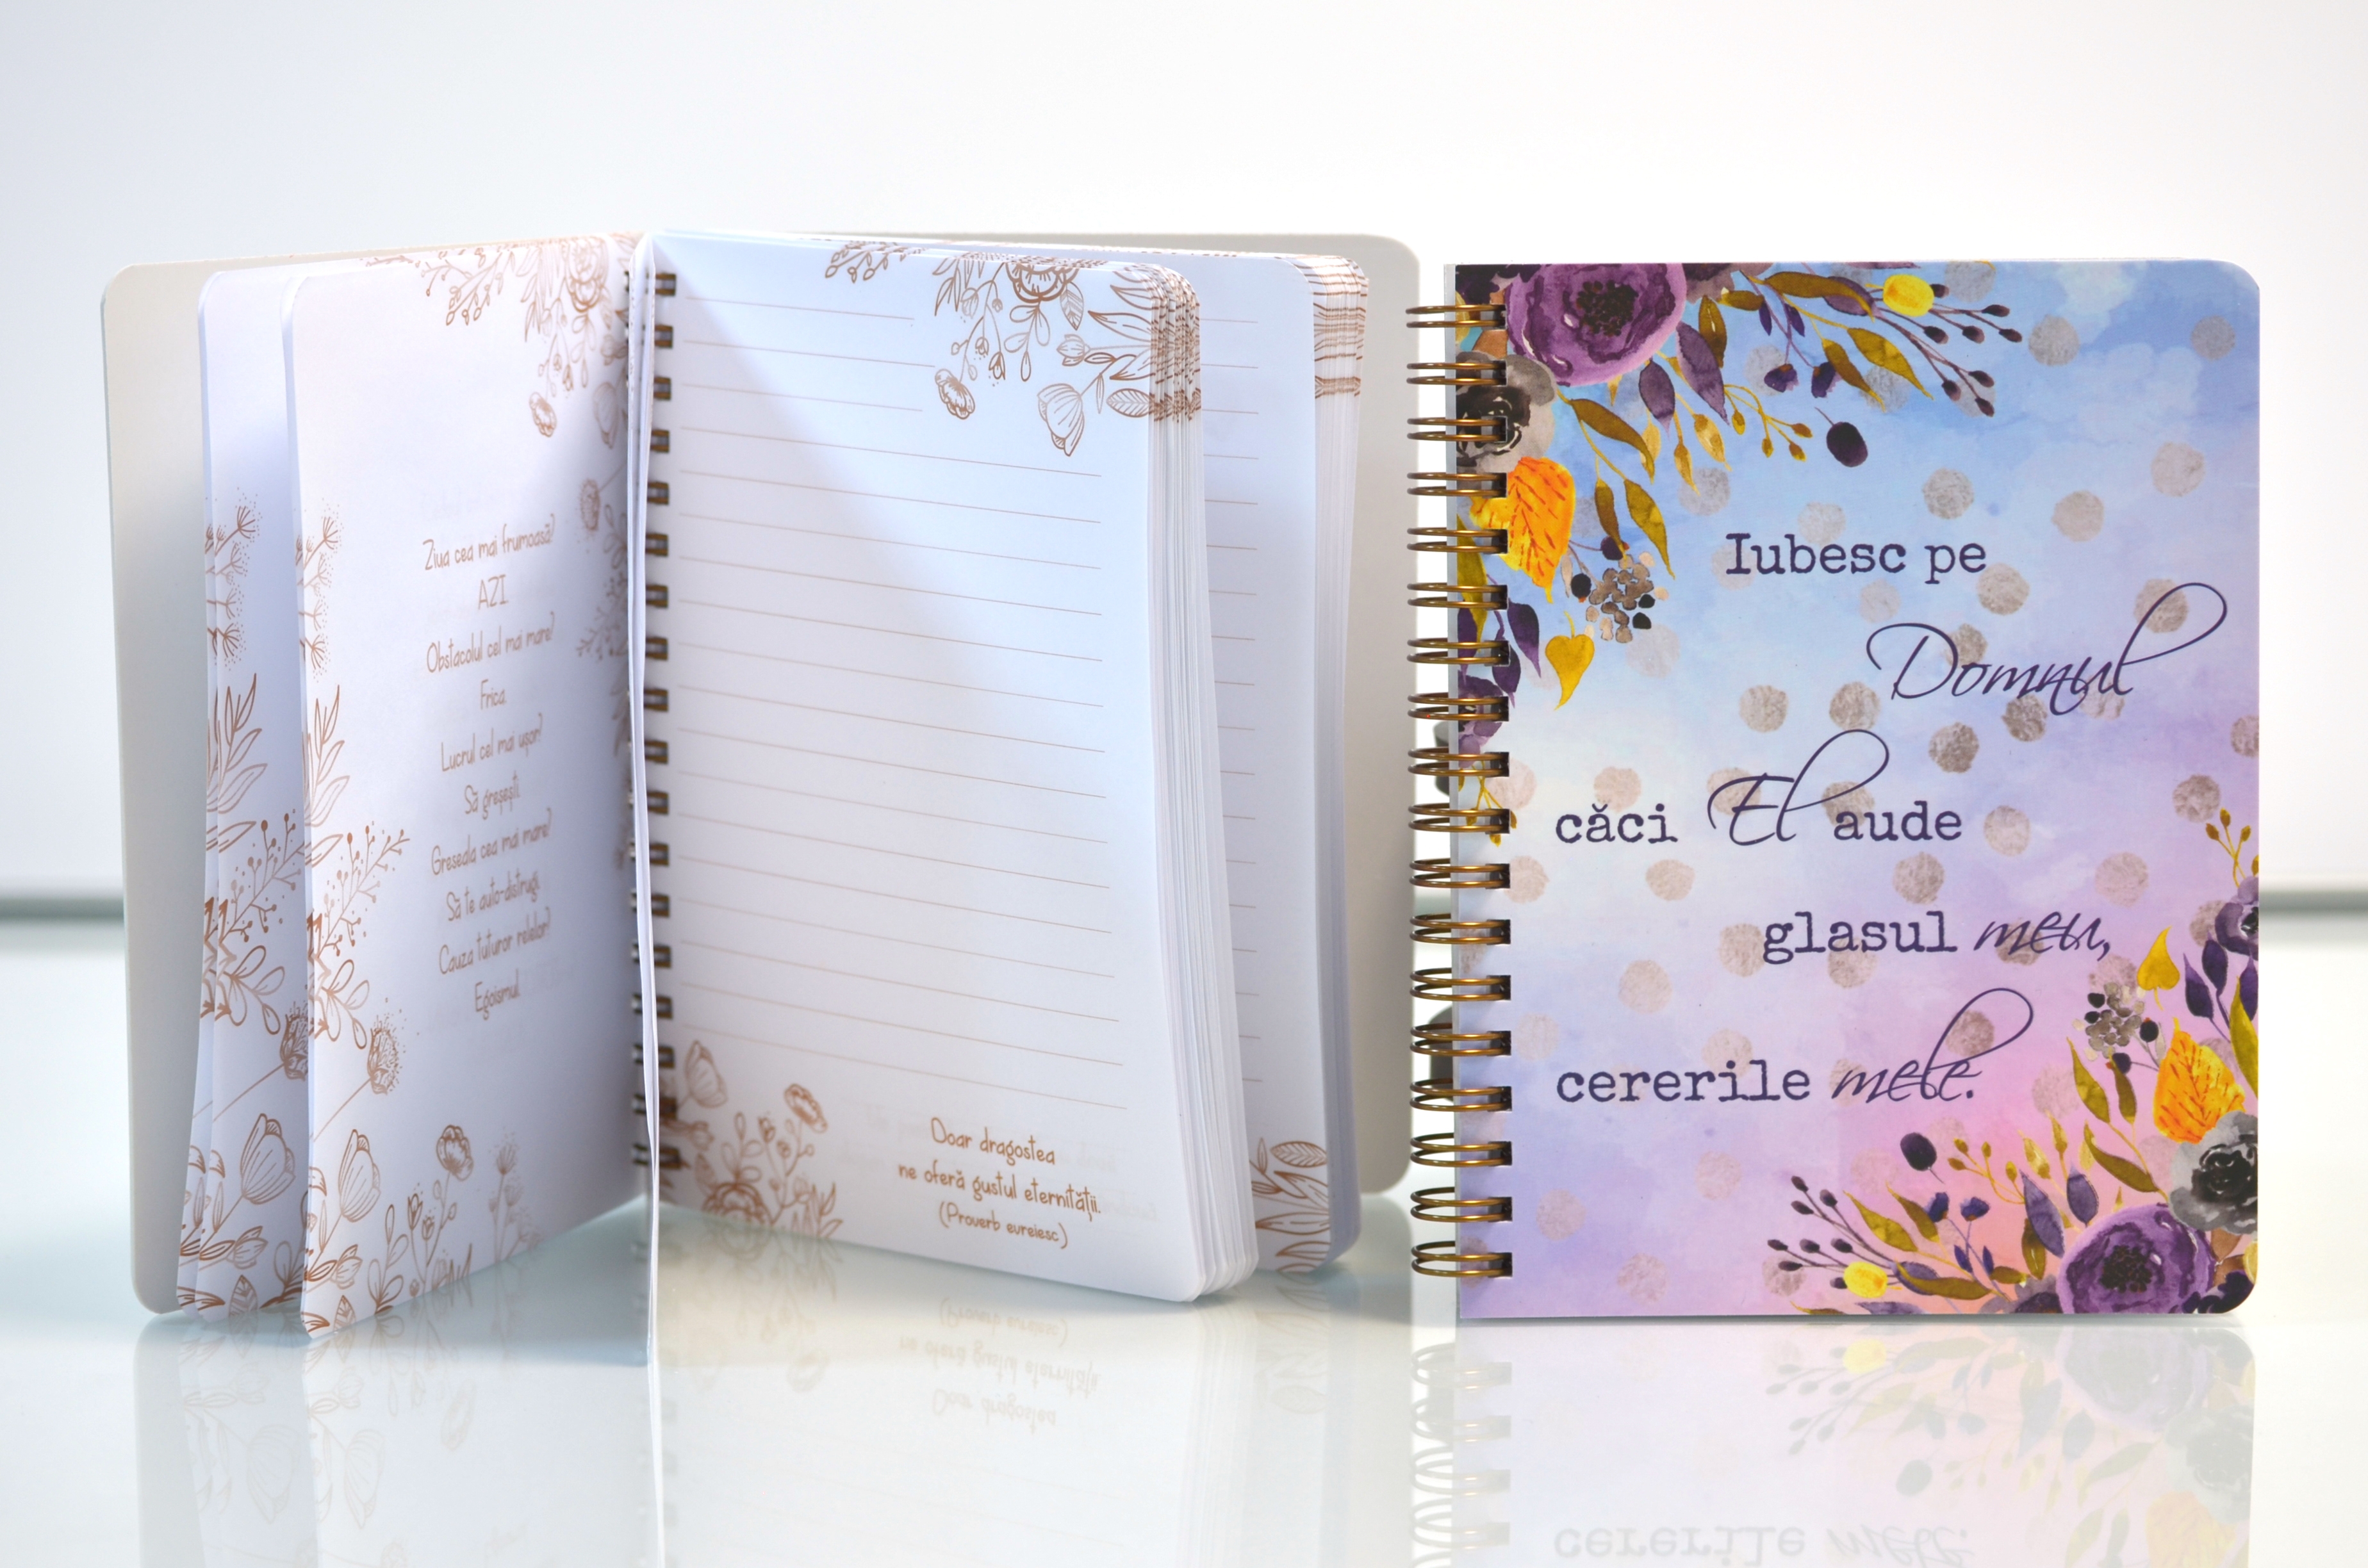 Ziua cea mai frumoasă?
AZI.
Obstacolul cel mai mare?
Frica.
Lucrul cel mai ușor?
Să greșești.
Greșeala cea mai mare?
Să te auto-distrugi.
Cauza tuturor relelor?
Egoismul.
Doar dragostea
ne oferă gustul eternității.
(Proverb evreiesc)
Iubesc pe
Domnul
căci El aude
glasul meu,
cererile mele.